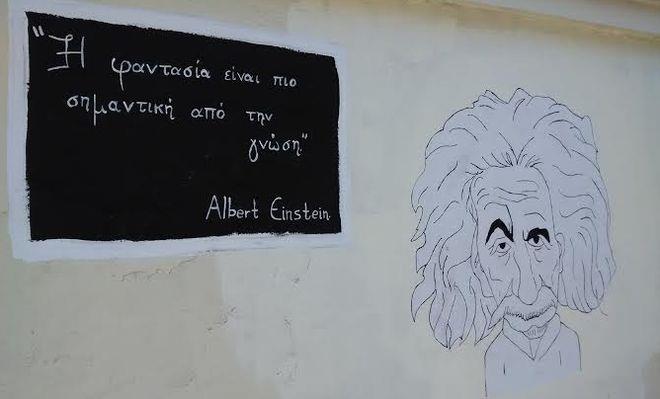 "Η φαντασία είναι πιο
σημαντική από την
γνώση"
Albert Einstein.